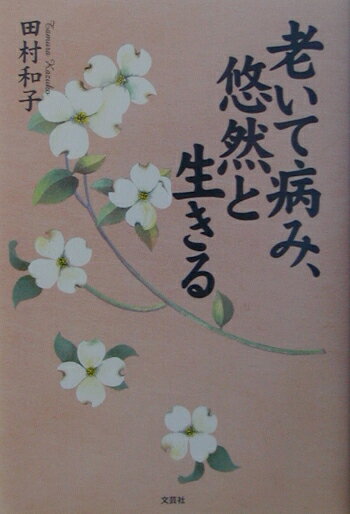 老いて病み、
悠然と
生きる
田村和子
Tamura Kazuko
文芸社